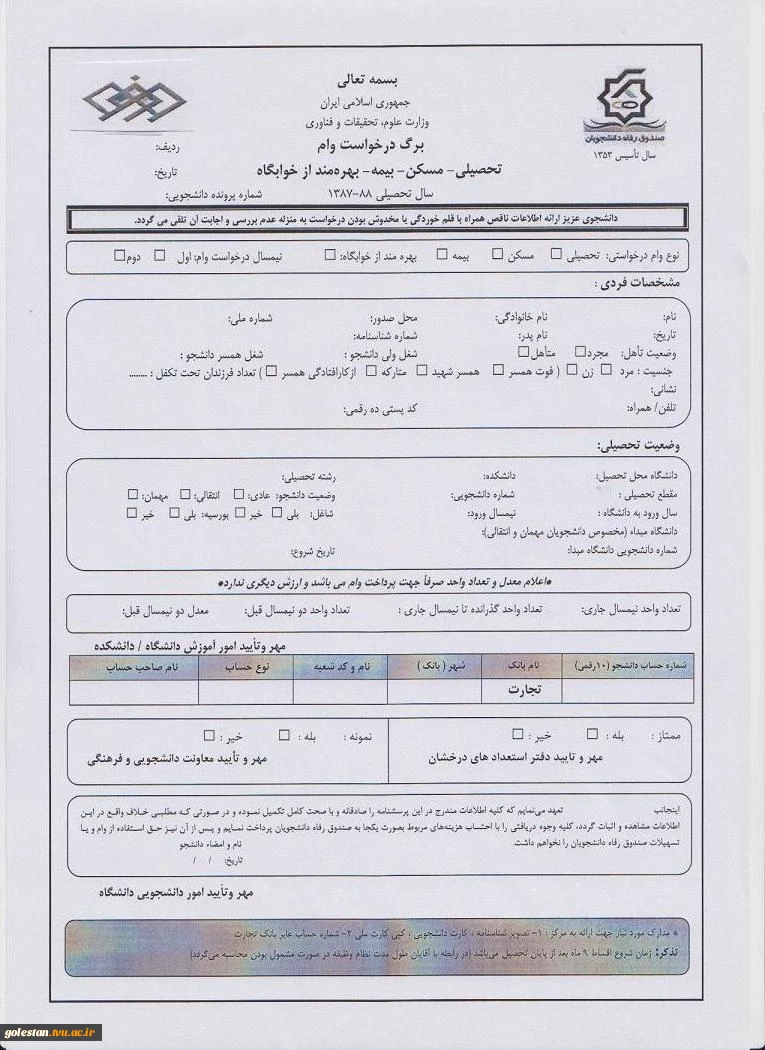 بسمه تعالی
جمهوری اسلامی ایران
وزارت علوم، تحقیقات و فناوری
برگ درخواست وام
تحصیلی- مسکن- بیمه- بهره‌مند از خوابگاه
سال تحصیلی ۸۸-۱۳۸۷
صندوق رفاه دانشجویان
سال تأسیس ۱۳۵۳
ردیف:
تاریخ:
شماره پرونده دانشجویی:
دانشجوی عزیز ارائه اطلاعات ناقص همراه با قلم خوردگی یا مخدوش بودن درخواست به منزله عدم بررسی و اجابت آن تلقی می گردد.
نوع وام درخواستی: تحصیلی □ مسکن □ بیمه □ بهره مند از خوابگاه: □ نیمسال درخواست وام: اول □ دوم □
مشخصات فردی :
نام: نام خانوادگی: محل صدور: شماره ملی:
تاریخ: نام پدر: شماره شناسنامه:
وضعیت تأهل: مجرد □ متأهل □ شغل ولی دانشجو : شغل همسر دانشجو :
جنسیت : مرد □ زن □ ( فوت همسر □ همسر شهید □ متارکه □ ازکارافتادگی همسر □ ) تعداد فرزندان تحت تکفل : ........
نشانی:
تلفن/ همراه: کد پستی ده رقمی:
وضعیت تحصیلی:
دانشگاه محل تحصیل: دانشکده: رشته تحصیلی:
مقطع تحصیلی : شماره دانشجویی: وضعیت دانشجو: عادی: □ انتقالی: □ مهمان: □
سال ورود به دانشگاه : نیمسال ورود: شاغل: بلی □ خیر □ بورسیه: بلی □ خیر □
دانشگاه مبداء (مخصوص دانشجویان مهمان و انتقالی):
شماره دانشجویی دانشگاه مبدا: تاریخ شروع:
●اعلام معدل و تعداد واحد صرفاً جهت پرداخت وام می باشد و ارزش دیگری ندارد●
تعداد واحد نیمسال جاری: تعداد واحد گذرانده تا نیمسال جاری : تعداد واحد دو نیمسال قبل: معدل دو نیمسال قبل:
مهر وتأیید امور آموزش دانشگاه / دانشکده
شماره حساب دانشجو (۱۰رقمی) نام بانک شهر ( بانک ) نام و کد شعبه نوع حساب نام صاحب حساب
تجارت
ممتاز : بله : □ خیر : □ نمونه : بله : □ خیر : □
مهر و تایید دفتر استعداد های درخشان مهر و تأیید معاونت دانشجویی و فرهنگی
اینجانب تعهد می‌نمایم که کلیه اطلاعات مندرج در این پرسشنامه را صادقانه و با صحت کامل تکمیل نموده و در صورتی که مطلبی خلاف واقع در این
اطلاعات مشاهده و اثبات گردد، کلیه وجوه دریافتی را با احتساب هزینه‌های مربوط بصورت یکجا به صندوق رفاه دانشجویان پرداخت نمایم و پس از آن نیز حق استفاده از وام و یا
تسهیلات صندوق رفاه دانشجویان را نخواهم داشت.
نام و امضاء دانشجو
تاریخ: / /
مهر وتأیید امور دانشجویی دانشگاه
* مدارک مورد نیاز جهت ارائه به مرکز : ۱- تصویر شناسنامه ، کارت دانشجویی ، کپی کارت ملی ۲- شماره حساب عابر بانک تجارت
تذکر: زمان شروع اقساط ۹ ماه بعد از پایان تحصیل می‌باشد (در رابطه با آقایان طول مدت نظام وظیفه در صورت مشمول بودن محاسبه می‌گردد)
golestan.tvu.ac.ir